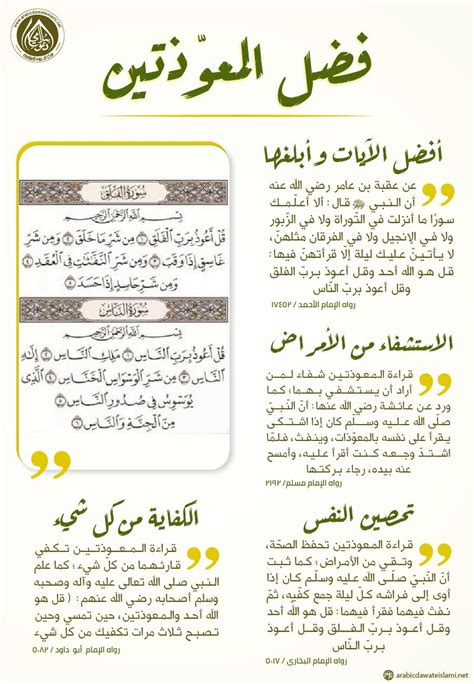 فضل المعوّذتين
أفضل الآيات وأبلغها
عن عقبة بن عامر رضي الله عنه
أن النبي ﷺ قال: ألا أعلّمك
سورًا ما أنزلت في التّوراة ولا في الزّبور
ولا في الإنجيل ولا في الفرقان مثلهن،
لا يأتينّ عليك ليلة إلّا قرأتهنّ فيها:
قل هو الله أحد وقل أعوذ بربّ الفلق
وقل أعوذ بربّ النّاس
رواه الإمام الأحمد / ١٧٤٥٢
سُورَةُ الفَلَقِ
بِسْمِ اللَّهِ الرَّحْمَٰنِ الرَّحِيمِ
قُلْ أَعُوذُ بِرَبِّ الْفَلَقِ ١ مِن شَرِّ مَا خَلَقَ ٢ وَمِن شَرِّ
غَاسِقٍ إِذَا وَقَبَ ٣ وَمِن شَرِّ النَّفَّاثَاتِ فِي الْعُقَدِ ٤
وَمِن شَرِّ حَاسِدٍ إِذَا حَسَدَ ٥
سُورَةُ النَّاسِ
بِسْمِ اللَّهِ الرَّحْمَٰنِ الرَّحِيمِ
قُلْ أَعُوذُ بِرَبِّ النَّاسِ ١ مَلِكِ النَّاسِ ٢ إِلَٰهِ
النَّاسِ ٣ مِن شَرِّ الْوَسْوَاسِ الْخَنَّاسِ ٤ الَّذِي
يُوَسْوِسُ فِي صُدُورِ النَّاسِ ٥
مِنَ الْجِنَّةِ وَالنَّاسِ ٦
الاستشفاء من الأمراض
قراءة المعوذتين شفاء لمـن
أراد أن يستشفي بـهمـا؛ كما
ورد عن عائشة رضي الله عنها: أنّ النّبيّ
صلّى الله عليه وسلّم كان إذا اشتكى
يقرأ على نفسه بالمعوّذات، وينفث، فلمّا
اشتدّ وجعـه كنت أقرأ عليه، وأمسح
عنه بيده، رجاء بركتها
رواه الإمام مسلم/ ٢١٩٢
تحصين النفس
قراءة المعوذتين تحفظ الصحّة،
وتقي من الأمراض؛ كما ثبت
أنّ النّبيّ صلّى الله عليه وسلّم كان إذا
أوى إلى فراشه كلّ ليلة جمع كفّيه، ثمّ
نفث فيهما فقرأ فيهما: قل هو الله أحد
وقل أعوذ بربّ الفـلق وقل أعوذ
بربّ النّاس
رواه الإمام البخاري / ٥٠١٧
الكفاية من كل شيء
قراءة المـعـوذتـيـن تـكـفي
قارئهما من كلّ شيء؛ كما علم
النبي صلى الله تعالى عليه وآله وصحبه
وسلم أصحابه رضي الله عنهم: ( قل هو
الله أحد والمعوذتين، حين تمسي وحين
تصبح ثلاث مرات تكفيك من كل شيء
رواه الإمام أبو داود / ٥٠٨٢
arabicdawateislami.net